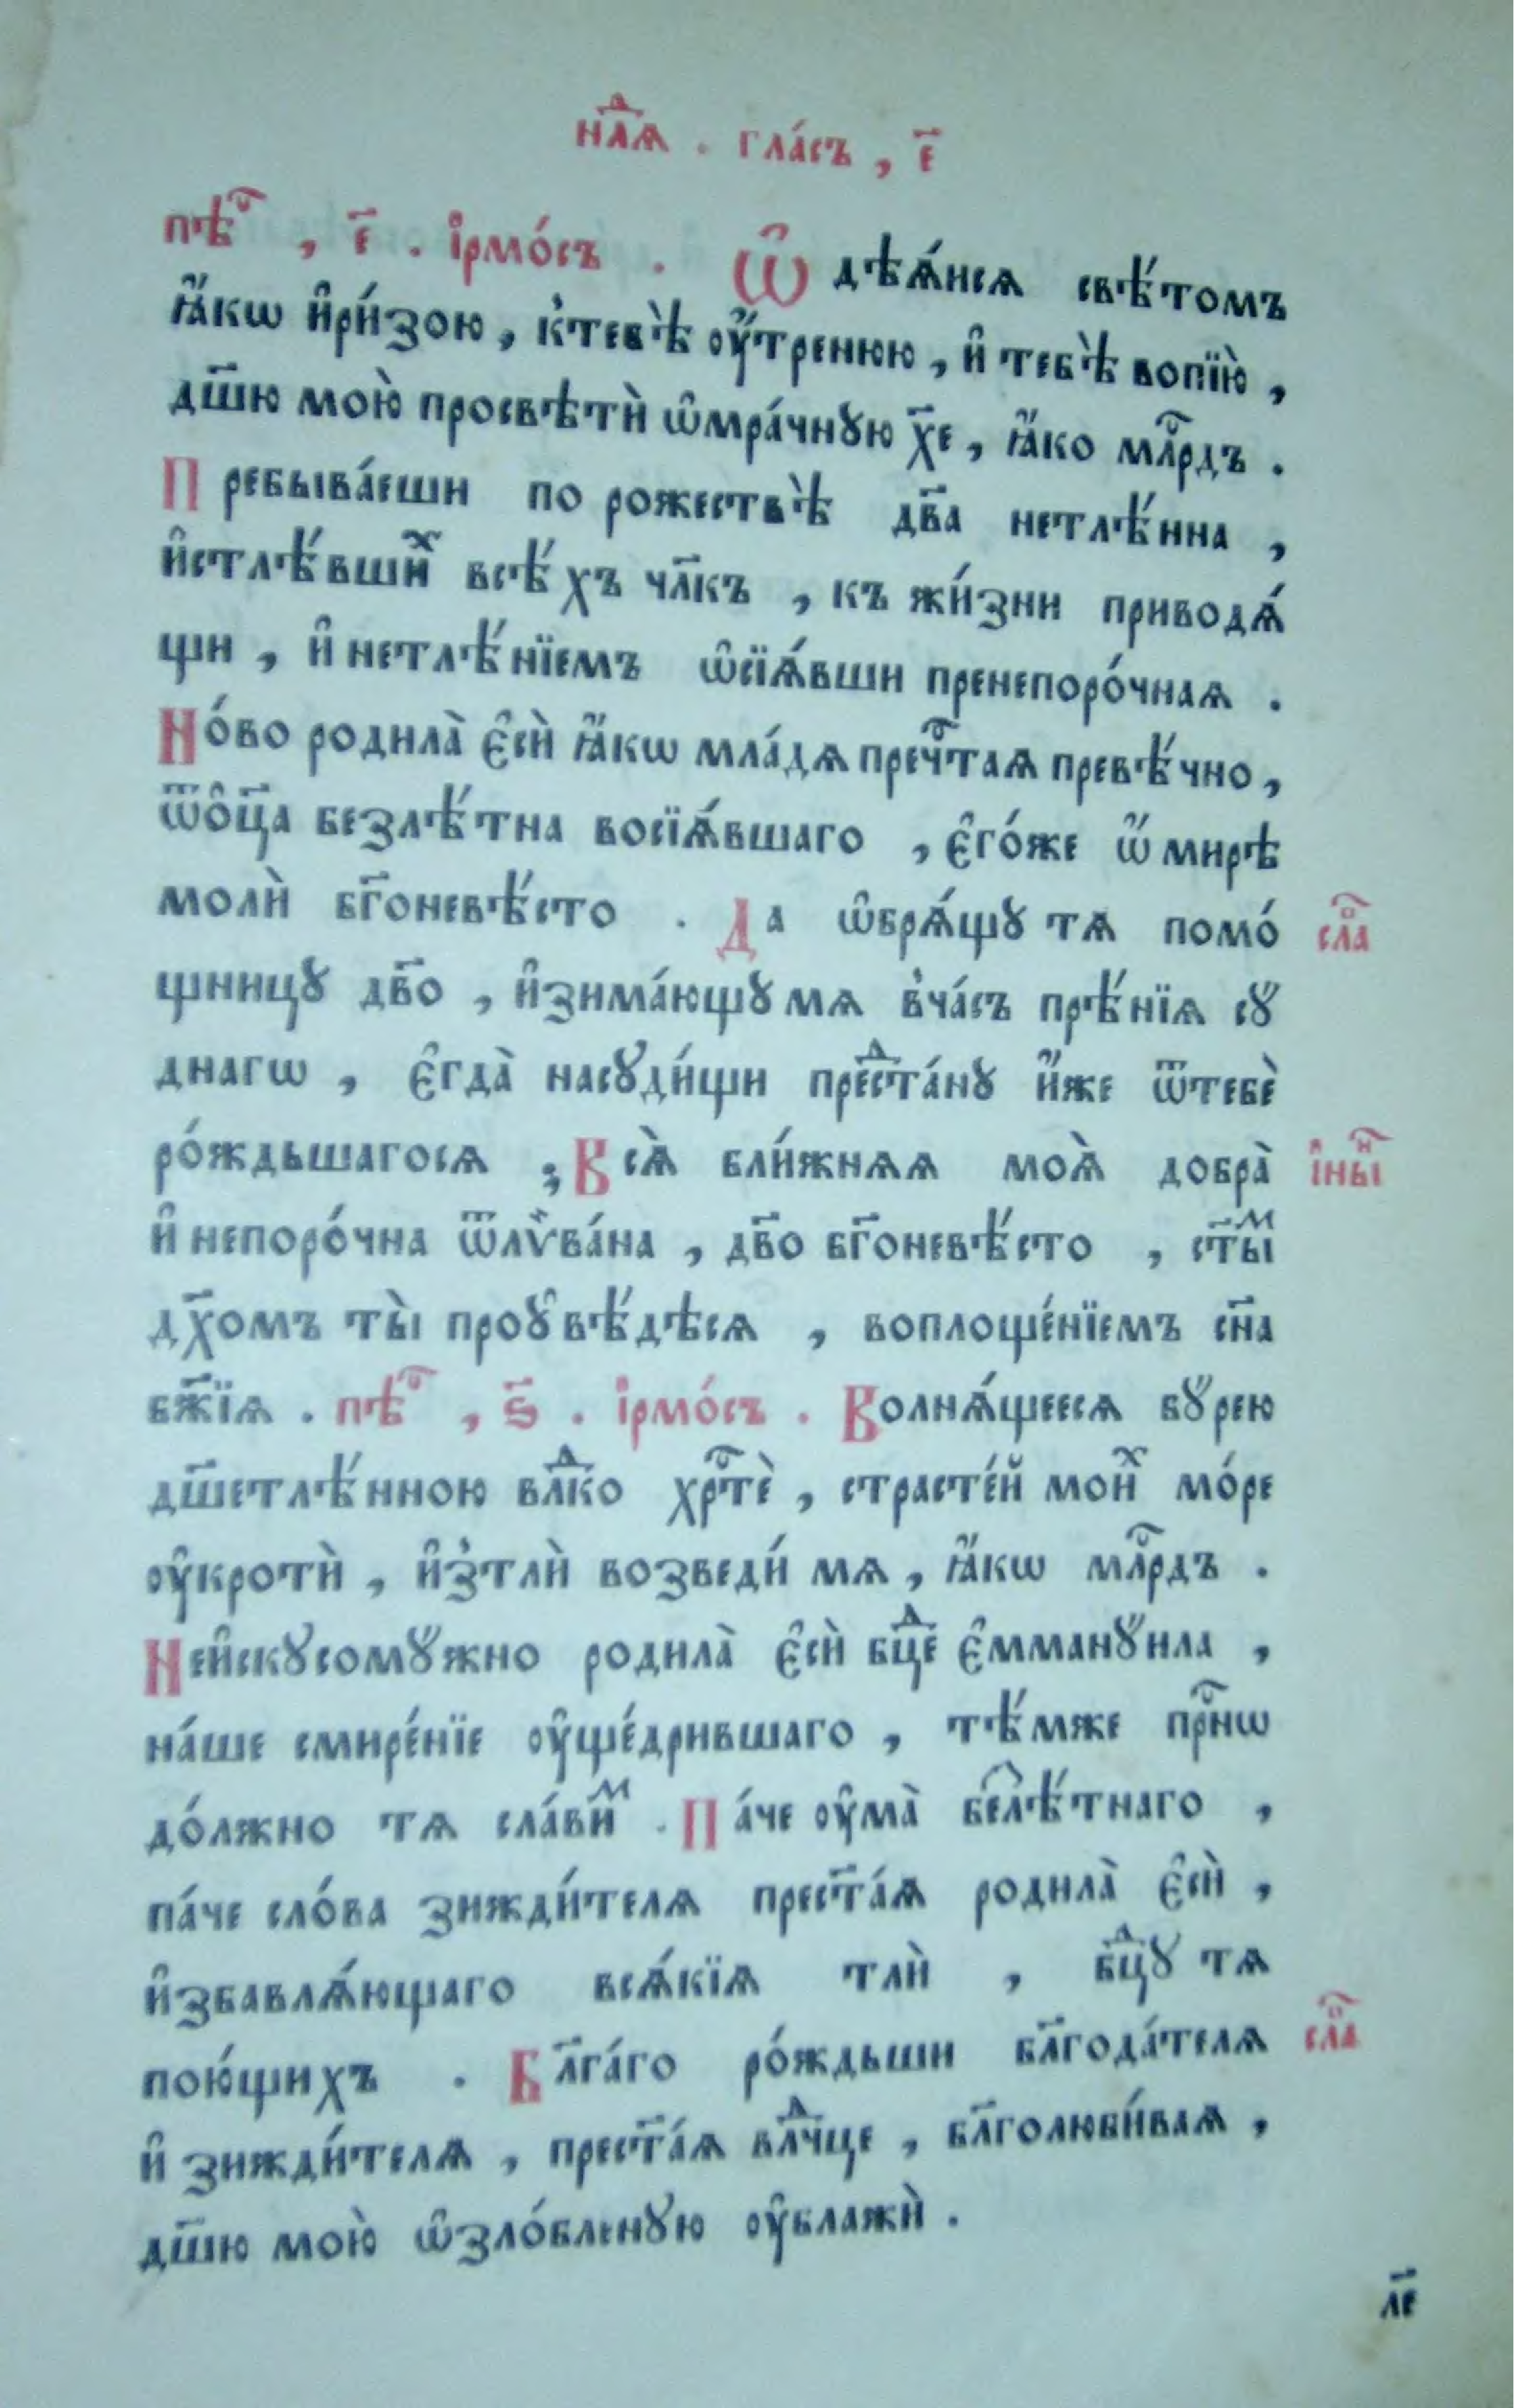 нл҇ⷣѧ . гла́съ , е҃
пѣ҇ⷭ , е҃ . і҆рмо́съ . Ѡ҆дѣѧ́нсѧ свѣ́томъ
ꙗ҆́кѡ и҆ри́зою , к̾тебѣ̀ ᲂу҆́тренюю , и҆ тебѣ̀ вопїю̀ ,
дш҃ю мою̀ просвѣтѝ ѡ҆мра́чнꙋю хе҃ , ꙗ҆́ко млⷭ҇рдъ .
Пребыва́еши по рожествѣ̀ дв҃а нетлѣ́нна ,
и҆стлѣ́вшиⷯ всѣ́хъ чл҃къ , къ жи́зни приводѧ́
щи , и҆ нетлѣ́нїемъ ѡ҆сїѧ́вши пренепоро́чнаѧ .
Но́во родила̀ є҆сѝ ꙗ҆́кѡ мла́дѧ пречⷭ҇таѧ превѣ́чно ,
ѿѻ҆ц҃а безлѣ́тна восїѧ́вшаго , є҆го́же ѡ҆́ мирѣ
молѝ бг҃оневѣ́сто . Да ѡ҆брѧ́щꙋ тѧ помо́ слаⷡ҇
щницꙋ дв҃о , и҆зима́ющꙋ мѧ в̾ча́съ прѣ́нїѧ сꙋ́
днагѡ , є҆гда̀ насꙋди́щи преⷣста́нꙋ и҆́же ѿтебѐ
ро́ждьшагосѧ ; Всѧ̀ бли́жнѧѧ моѧ̀ добра̀ і҆ны҇ⷩ
и҆ непоро́чна ѿлѵва́на , дв҃о бг҃оневѣ́сто , ст҃ыⷨ
дх҃омъ ты̀ проꙋвѣ́дѣсѧ , воплоще́нїемъ сн҃а
бж҃їѧ . пѣ҇ⷭ , ѕ҃ . і҆рмо́съ . Волнѧ́щеесѧ бꙋ́рею
дш҃етлѣ́нною влⷣко хрⷭ҇тѐ , страсте́й моиⷯ мо́ре
ᲂу҆кротѝ , и҆з̾тлѝ возведи́ мѧ , ꙗ҆́кѡ млⷭ҇рдъ .
Неи҆скꙋсомꙋ́жно родила̀ є҆сѝ бцⷣе є҆мманꙋ́ила ,
на́ше смире́нїе ᲂу҆ще́дрившаго , тѣ́мже прⷭ҇нѡ
до́лжно тѧ сла́виⷨ . Па́че ᲂу҆ма̀ беⷥлѣ́тнаго ,
па́че сло́ва зижди́телѧ прест҃а́ѧ родила̀ є҆сѝ ,
и҆збавлѧ́ющаго всѧ́кїѧ тлѝ , бцⷣꙋ тѧ
пою́щихъ . Бл҃га́го ро́ждьши бл҃года́телѧ слаⷡ҇
и҆ зижди́телѧ , прест҃а́ѧ влⷣчце , бл҃голюби́ваѧ ,
дш҃ю мою̀ ѡ҆зло́бленꙋю ᲂу҆блажѝ .
ле҃